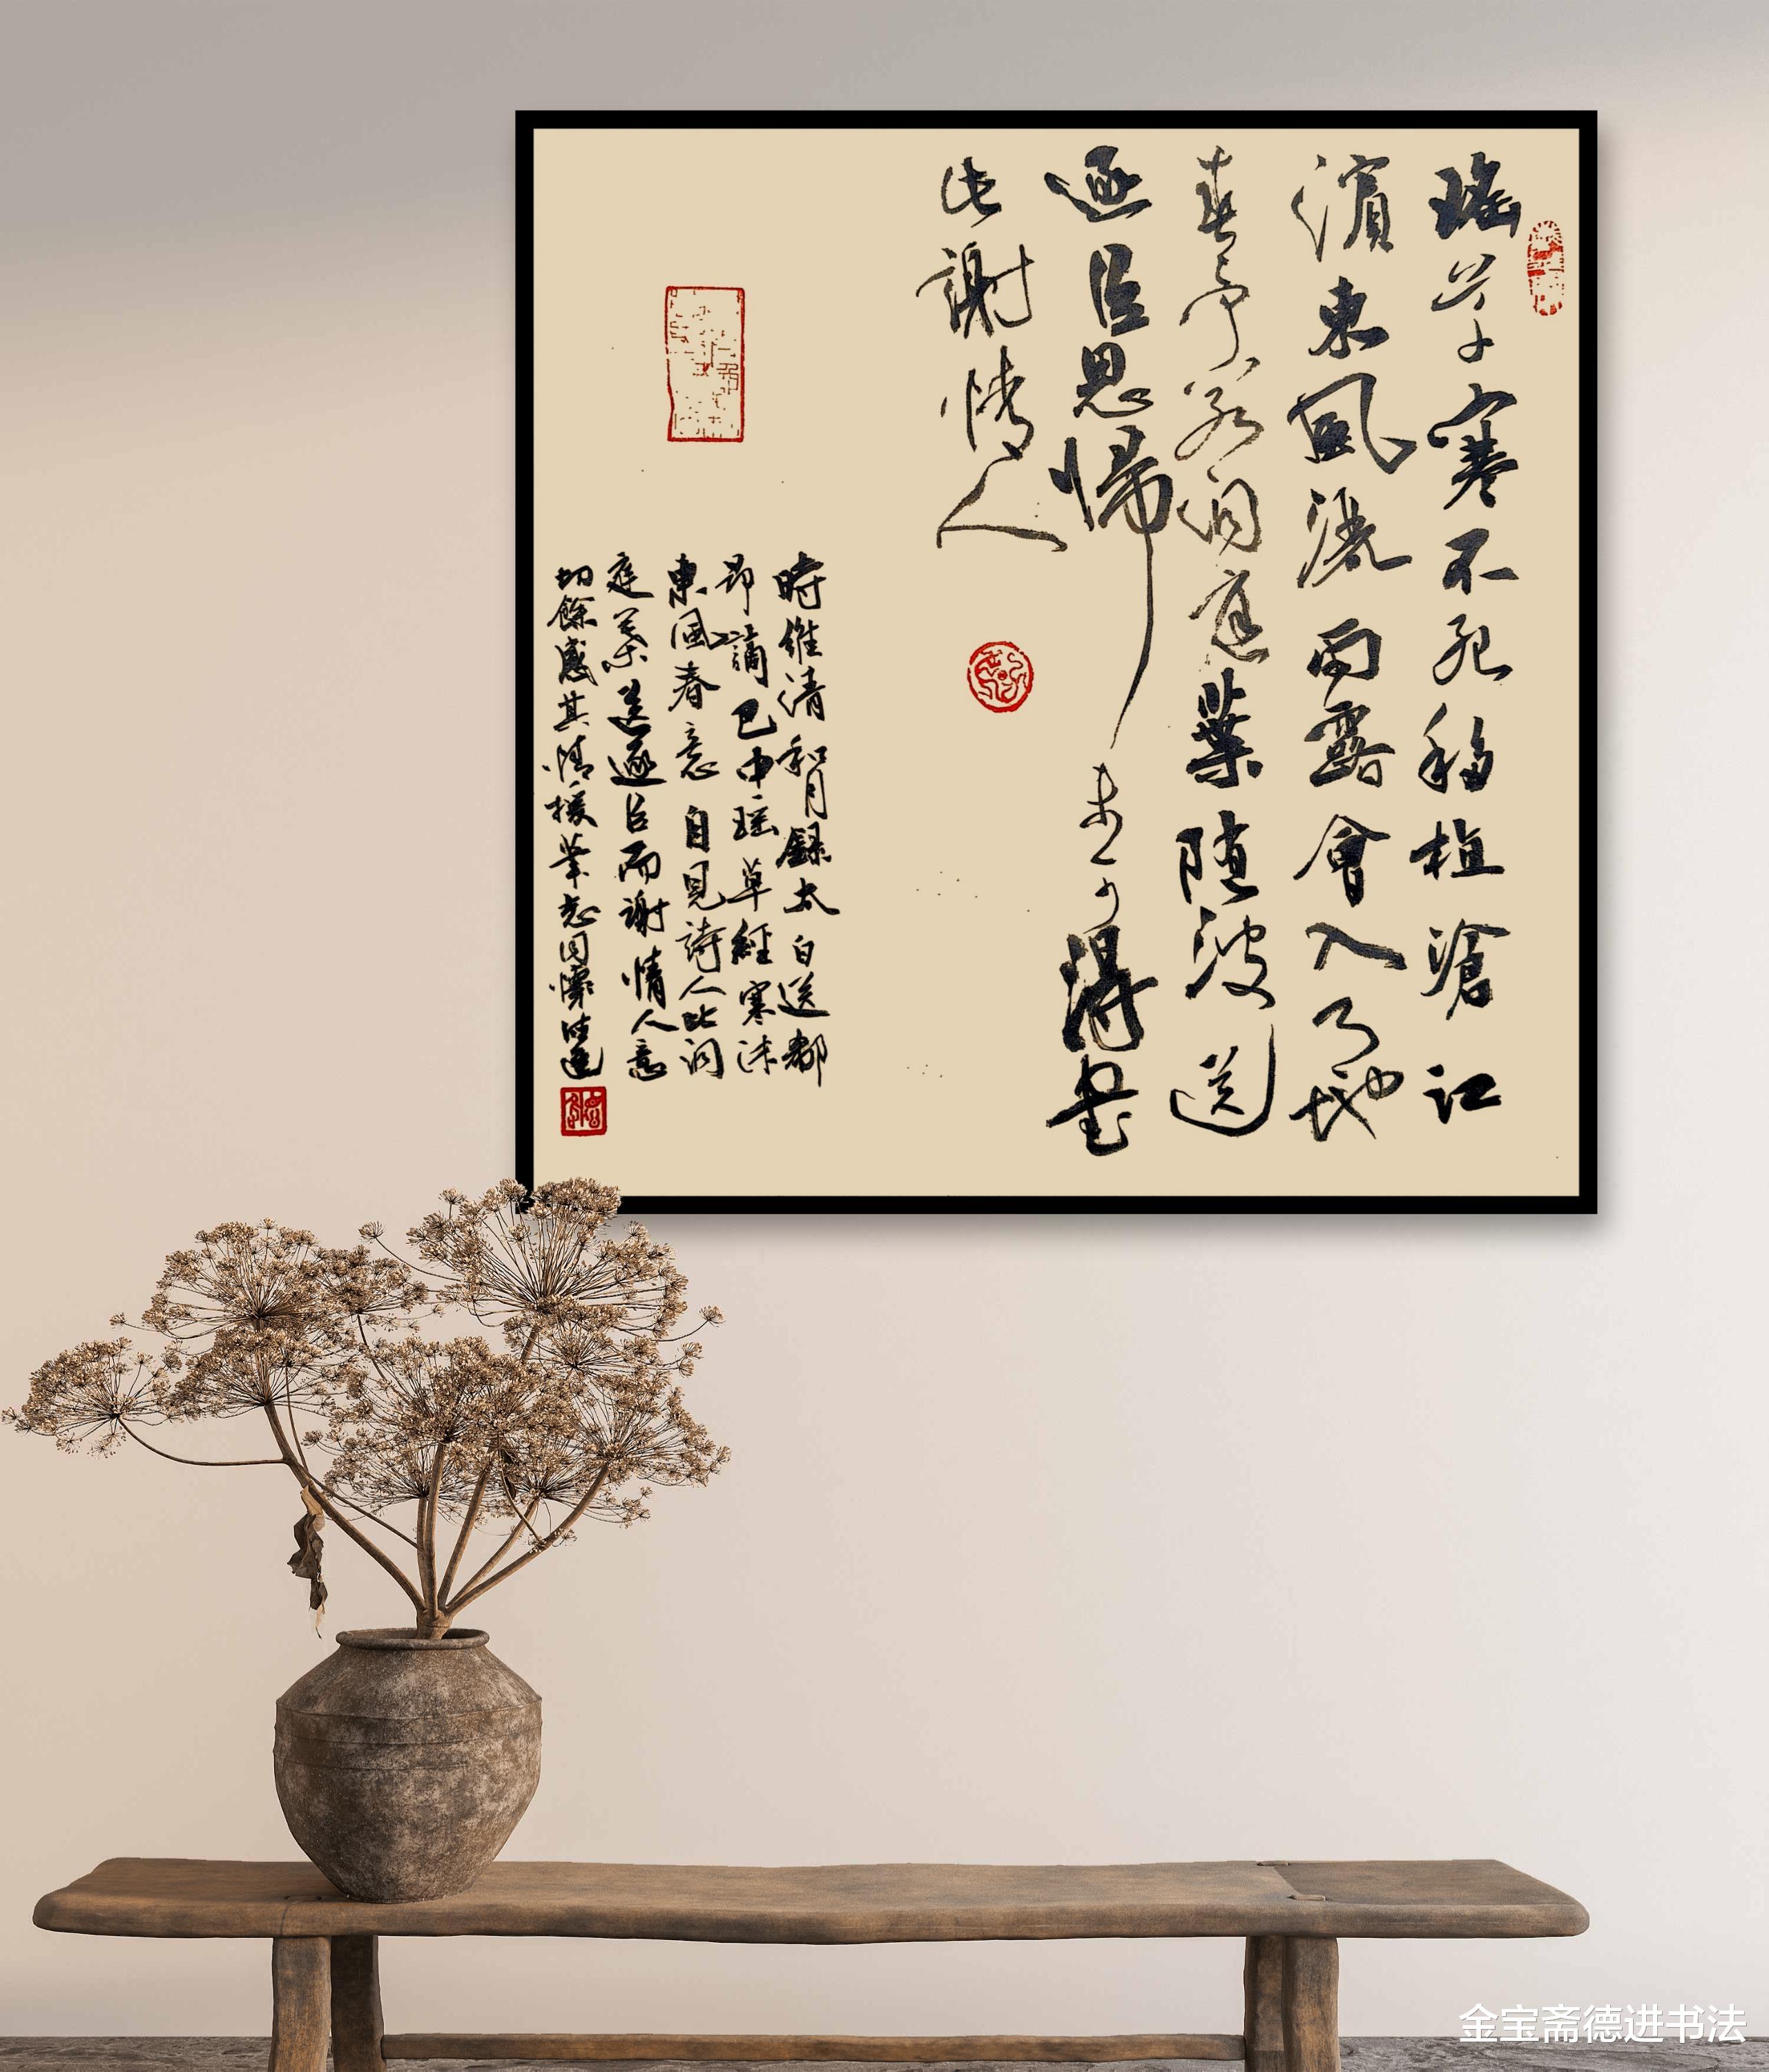 瑤草寒不死移植滄江
濱東風洒雨露會入天地
春予若洞庭葉随波送
逐臣思歸未可得書
此謝情人
時維清和月録太白送郗
昂謫巴中瑶草經寒沐
東風春意自見詩人比洞
庭葉送逐臣而謝情人意
切餘感其情援筆志同懷德進
金宝斋德进书法